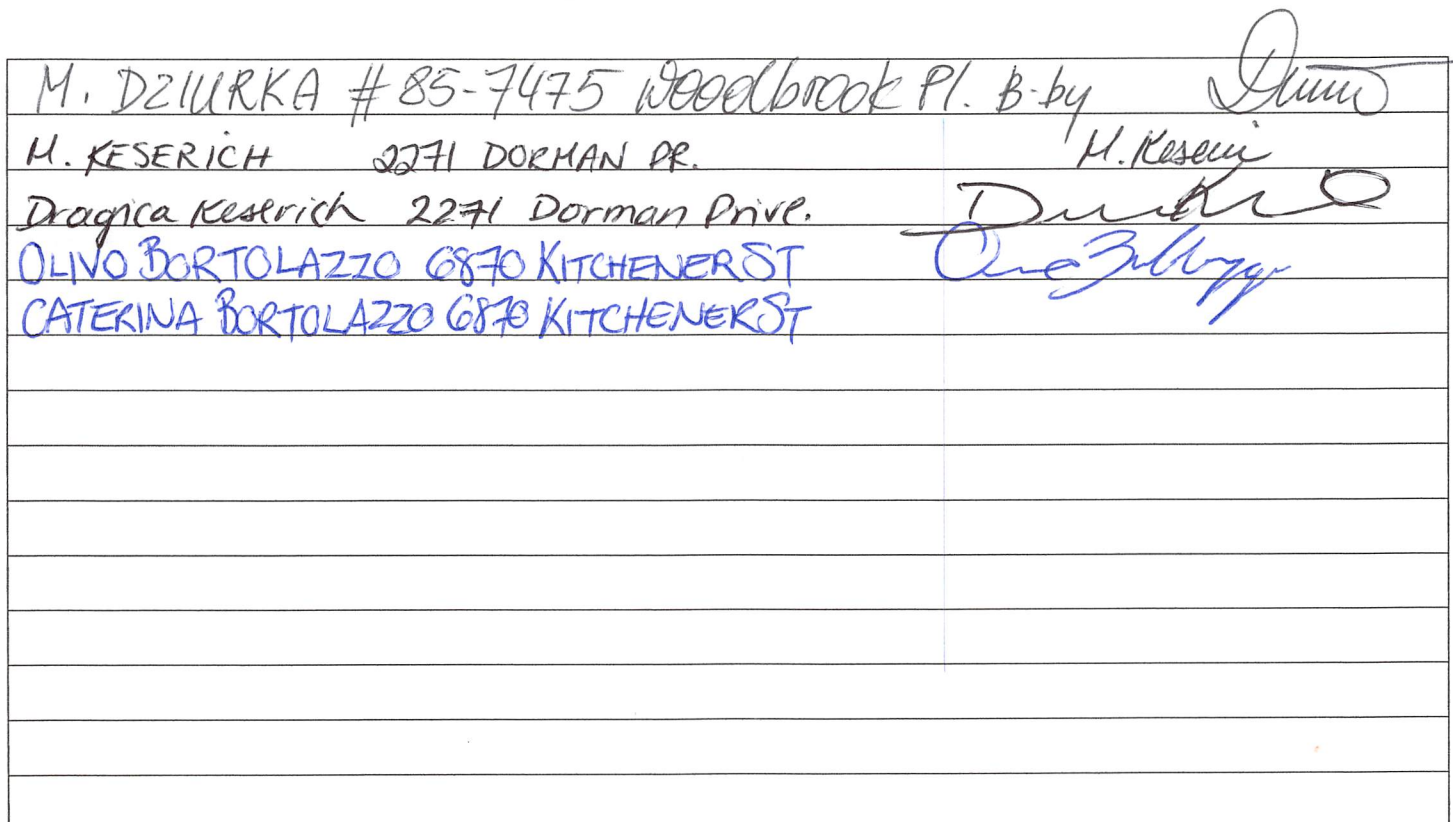 M. DZIURKA #85-7475 Woodbrook Pl. B-by
M. KESERICH 2271 DORMAN DR. M. Keseric
Dragica Keserich 2271 Dorman Drive.
OLIVO BORTOLAZZO 6870 KITCHENER ST
CATERINA BORTOLAZZO 6870 KITCHENER ST